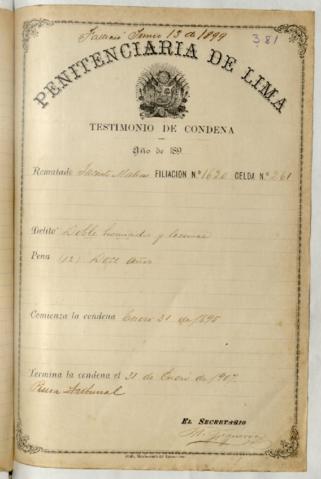 Falleció Junio 13 de 1899
381
PENITENCIARIA DE LIMA
TESTIMONIO DE CONDENA
Año de 189
Rematado Jacinto Matos FILIACION N.º 1620 CELDA N.º 261
Delito Doble homicidio y
Pena (12) Doce años
Comienza la condena Enero 31 de 1895
Termina la condena el 31 de Enero de 1907
Tribunal
EL SECRETARIO